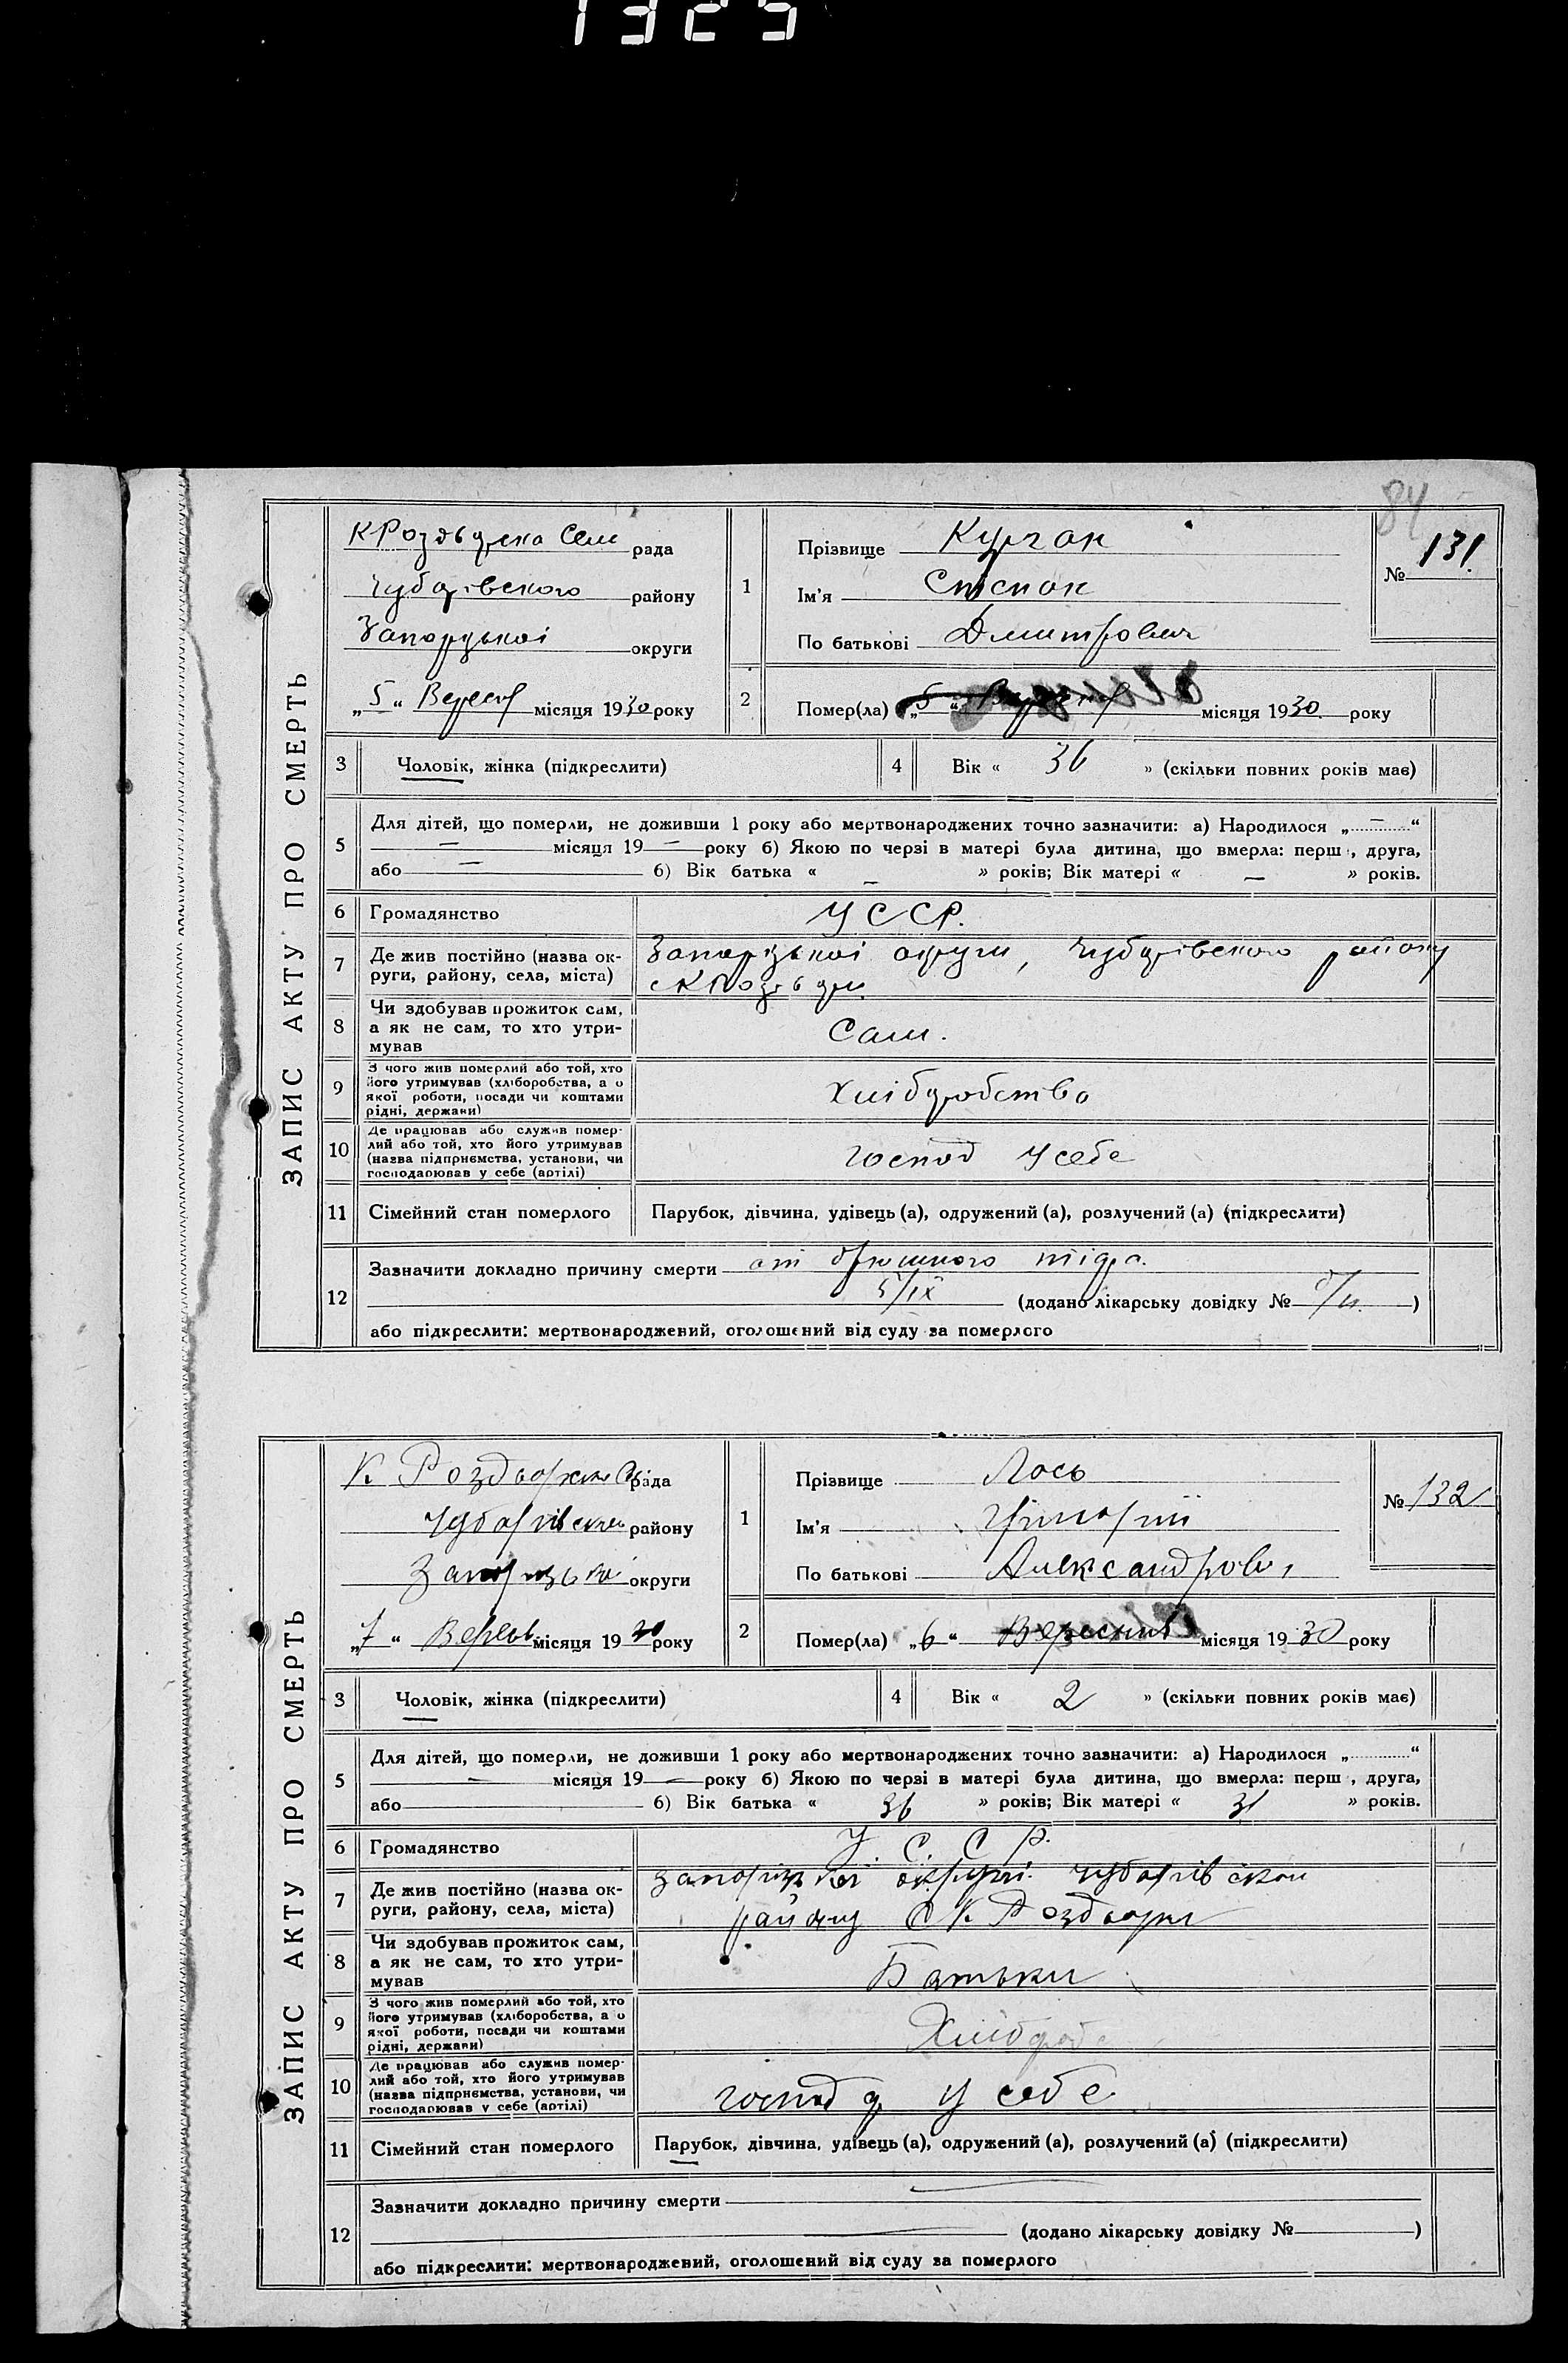 1325
84
ЗАПИС АКТУ ПРО СМЕРТЬ
рада
Чубарівського району
Запорузькоі округи
„5“ Верес місяця 1930 року
1 Прізвище Курган
Ім'я Степан
По батькові Дмитрович
№ 131
2 Помер(ла) „5“ місяця 1930 року
3 Чоловік, жінка (підкреслити)
4 Вік « 36 » (скільки повних років має)
5 Для дітей, що померли, не доживши 1 року або мертвонароджених точно зазначити: а) Народилося „ — “
— місяця 19 — року б) Якою по черзі в матері була дитина, що вмерла: перш , друга,
або — б) Вік батька « — » років; Вік матері « — » років.
6 Громадянство УССР.
7 Де жив постійно (назва округи, району, села, міста) Запорізькоі округи, Чубарівського району
8 Чи здобував прожиток сам, а як не сам, то хто утримував Сам.
9 З чого жив померлий або той, хто його утримував (хліборобства, а о якої роботи, посади чи коштами рідні, держави) Хліборобство
10 Де працював або служив померлий або той, хто його утримував (назва підприємства, установи, чи господарював у себе (артілі) господ у себе
11 Сімейний стан померлого Парубок, дівчина, удівець (а), одружений (а), розлучений (а) (підкреслити)
12 Зазначити докладно причину смерти от брюшного тіфа.
5/IX (додано лікарську довідку № )
або підкреслити: мертвонароджений, оголошений від суду за померлого
ЗАПИС АКТУ ПРО СМЕРТЬ
рада
району
округи
„7“ місяця 1930 року
1 Прізвище Лось
Ім'я Григорій
По батькові Александров
№ 132
2 Помер(ла) „6“ Вересния місяця 1930 року
3 Чоловік, жінка (підкреслити)
4 Вік « 2 » (скільки повних років має)
5 Для дітей, що померли, не доживши 1 року або мертвонароджених точно зазначити: а) Народилося „ “
— місяця 19 — року б) Якою по черзі в матері була дитина, що вмерла: перш , друга,
або б) Вік батька « 36 » років; Вік матері « 31 » років.
6 Громадянство У. С. С. Р.
7 Де жив постійно (назва округи, району, села, міста) округи
району
8 Чи здобував прожиток сам, а як не сам, то хто утримував Батьки
9 З чого жив померлий або той, хто його утримував (хліборобства, а о якої роботи, посади чи коштами рідні, держави)
10 Де працював або служив померлий або той, хто його утримував (назва підприємства, установи, чи господарював у себе (артілі) господар у себе
11 Сімейний стан померлого Парубок, дівчина, удівець (а), одружений (а), розлучений (а) (підкреслити)
12 Зазначити докладно причину смерти —
— (додано лікарську довідку № )
або підкреслити: мертвонароджений, оголошений від суду за померлого